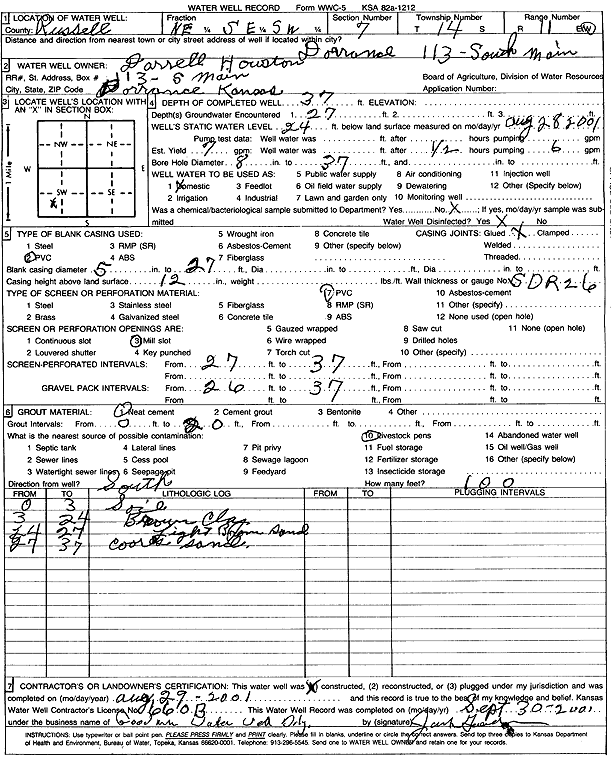 WATER WELL RECORD Form WWC-5 KSA 82a-1212
1 LOCATION OF WATER WELL: Fraction Section Number Township Number Range Number
County: Russell NE ¼ SE ¼ SW ¼ 7 T 14 S R 11 E/W
Distance and direction from nearest town or city street address of well if located within city?
Dorrance 113-South Main
2 WATER WELL OWNER: Darrell Houston
RR#, St. Address, Box # : 113-S Main Board of Agriculture, Division of Water Resources
City, State, ZIP Code : Dorrance Kansas Application Number:
3 LOCATE WELL'S LOCATION WITH AN "X" IN SECTION BOX:
N
NW NE
W E
SW SE
X
S
1 Mile
4 DEPTH OF COMPLETED WELL 37 ft. ELEVATION:
Depth(s) Groundwater Encountered 1. 27 ft. 2. ft. 3. ft.
WELL'S STATIC WATER LEVEL 24 ft. below land surface measured on mo/day/yr Aug 28 2001
Pump test data: Well water was ft. after hours pumping gpm
Est. Yield 7 gpm: Well water was ft. after 1/2 hours pumping 6 gpm
Bore Hole Diameter 8 in. to 37 ft., and in. to ft.
WELL WATER TO BE USED AS: 5 Public water supply 8 Air conditioning 11 Injection well
1 Domestic 3 Feedlot 6 Oil field water supply 9 Dewatering 12 Other (Specify below)
2 Irrigation 4 Industrial 7 Lawn and garden only 10 Monitoring well
Was a chemical/bacteriological sample submitted to Department? Yes No X ; If yes, mo/day/yr sample was submitted Water Well Disinfected? Yes X No
5 TYPE OF BLANK CASING USED: 5 Wrought iron 8 Concrete tile CASING JOINTS: Glued X Clamped
1 Steel 3 RMP (SR) 6 Asbestos-Cement 9 Other (specify below) Welded
2 PVC 4 ABS 7 Fiberglass Threaded
Blank casing diameter 5 in. to 27 ft., Dia in. to ft., Dia in. to ft.
Casing height above land surface 12 in., weight lbs./ft. Wall thickness or gauge No. SDR26
TYPE OF SCREEN OR PERFORATION MATERIAL: 7 PVC 10 Asbestos-cement
1 Steel 3 Stainless steel 5 Fiberglass 8 RMP (SR) 11 Other (specify)
2 Brass 4 Galvanized steel 6 Concrete tile 9 ABS 12 None used (open hole)
SCREEN OR PERFORATION OPENINGS ARE: 5 Gauzed wrapped 8 Saw cut 11 None (open hole)
1 Continuous slot 3 Mill slot 6 Wire wrapped 9 Drilled holes
2 Louvered shutter 4 Key punched 7 Torch cut 10 Other (specify)
SCREEN-PERFORATED INTERVALS: From 27 ft. to 37 ft., From ft. to ft.
From ft. to ft., From ft. to ft.
GRAVEL PACK INTERVALS: From 26 ft. to 37 ft., From ft. to ft.
From ft. to ft., From ft. to ft.
6 GROUT MATERIAL: 1 Neat cement 2 Cement grout 3 Bentonite 4 Other
Grout Intervals: From 0 ft. to 20 ft., From ft. to ft., From ft. to ft.
What is the nearest source of possible contamination: 10 Livestock pens 14 Abandoned water well
1 Septic tank 4 Lateral lines 7 Pit privy 11 Fuel storage 15 Oil well/Gas well
2 Sewer lines 5 Cess pool 8 Sewage lagoon 12 Fertilizer storage 16 Other (specify below)
3 Watertight sewer lines 6 Seepage pit 9 Feedyard 13 Insecticide storage
Direction from well? South How many feet? 100
FROM TO LITHOLOGIC LOG FROM TO PLUGGING INTERVALS
0 3 Soil
3 24 Brown Clay
24 27 Light Brown Sand
27 37 coarse sand.
7 CONTRACTOR'S OR LANDOWNER'S CERTIFICATION: This water well was (1) constructed, (2) reconstructed, or (3) plugged under my jurisdiction and was
completed on (mo/day/year) Aug 29-2001 and this record is true to the best of my knowledge and belief. Kansas
Water Well Contractor's License No. 660B This Water Well Record was completed on (mo/day/yr) Sept-30-2001
under the business name of Water Well Drlg. by (signature)
INSTRUCTIONS: Use typewriter or ball point pen. PLEASE PRESS FIRMLY and PRINT clearly. Please fill in blanks, underline or circle the correct answers. Send top three copies to Kansas Department
of Health and Environment, Bureau of Water, Topeka, Kansas 66620-0001. Telephone: 913-296-5545. Send one to WATER WELL OWNER and retain one for your records.